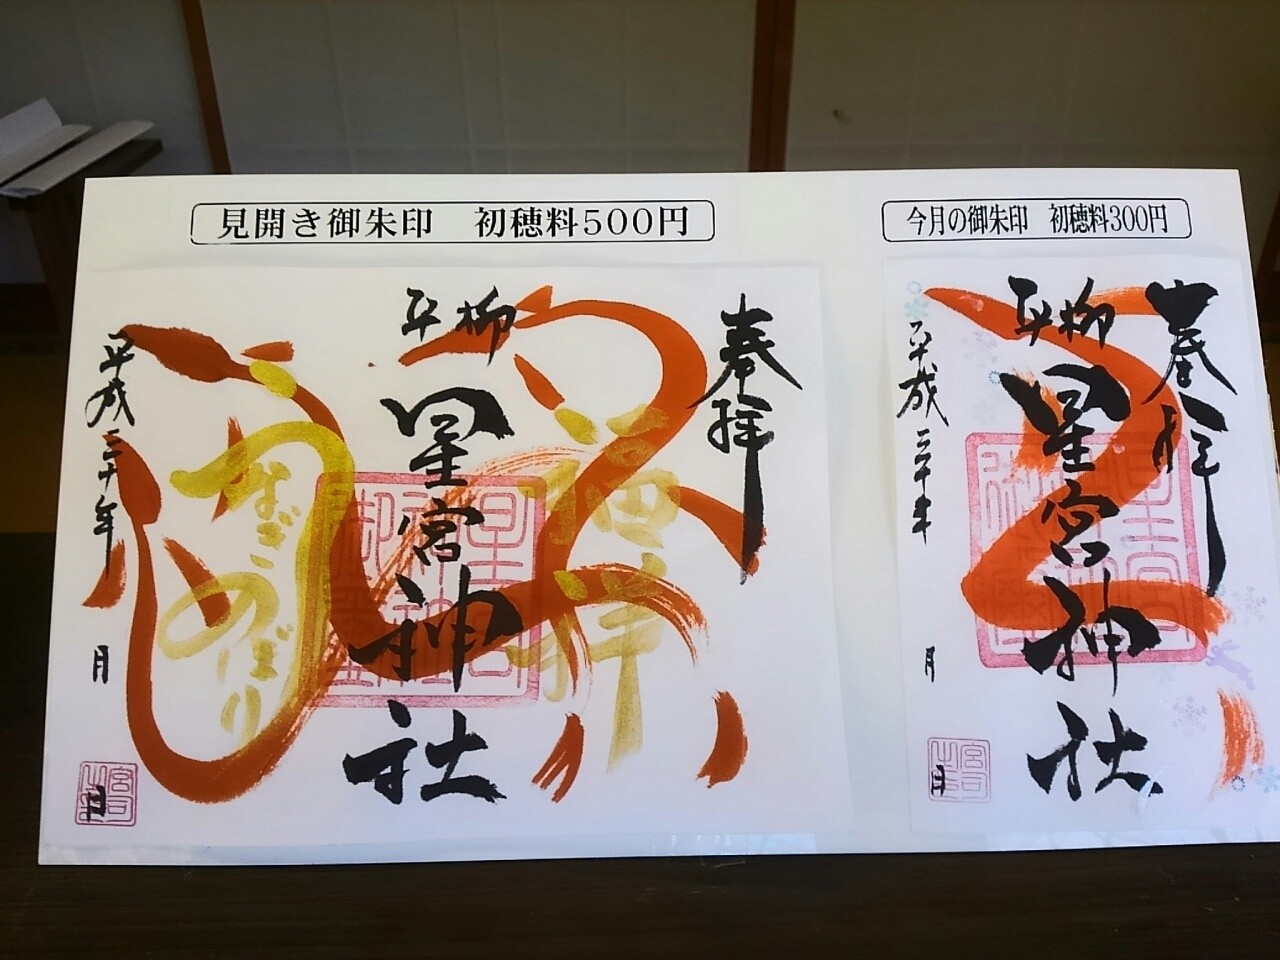 見開き御朱印 初穂料500円
奉拝
福祥
平柳
星宮神社
なごこめばり
平成三十年
月
日
今月の御朱印 初穂料300円
奉拝
平柳
星宮神社
平成三十年
月
日